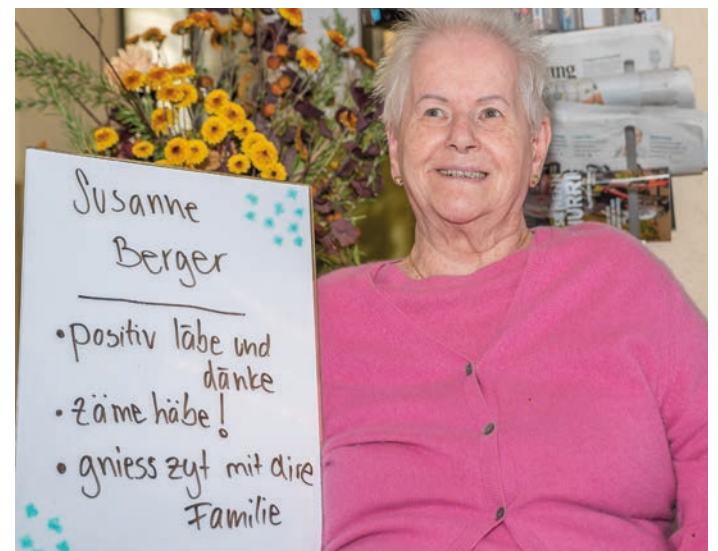 Susanne
Berger
• positiv läbe und
dänke
• zäme häbe!
• gniess zyt mit dire
Familie